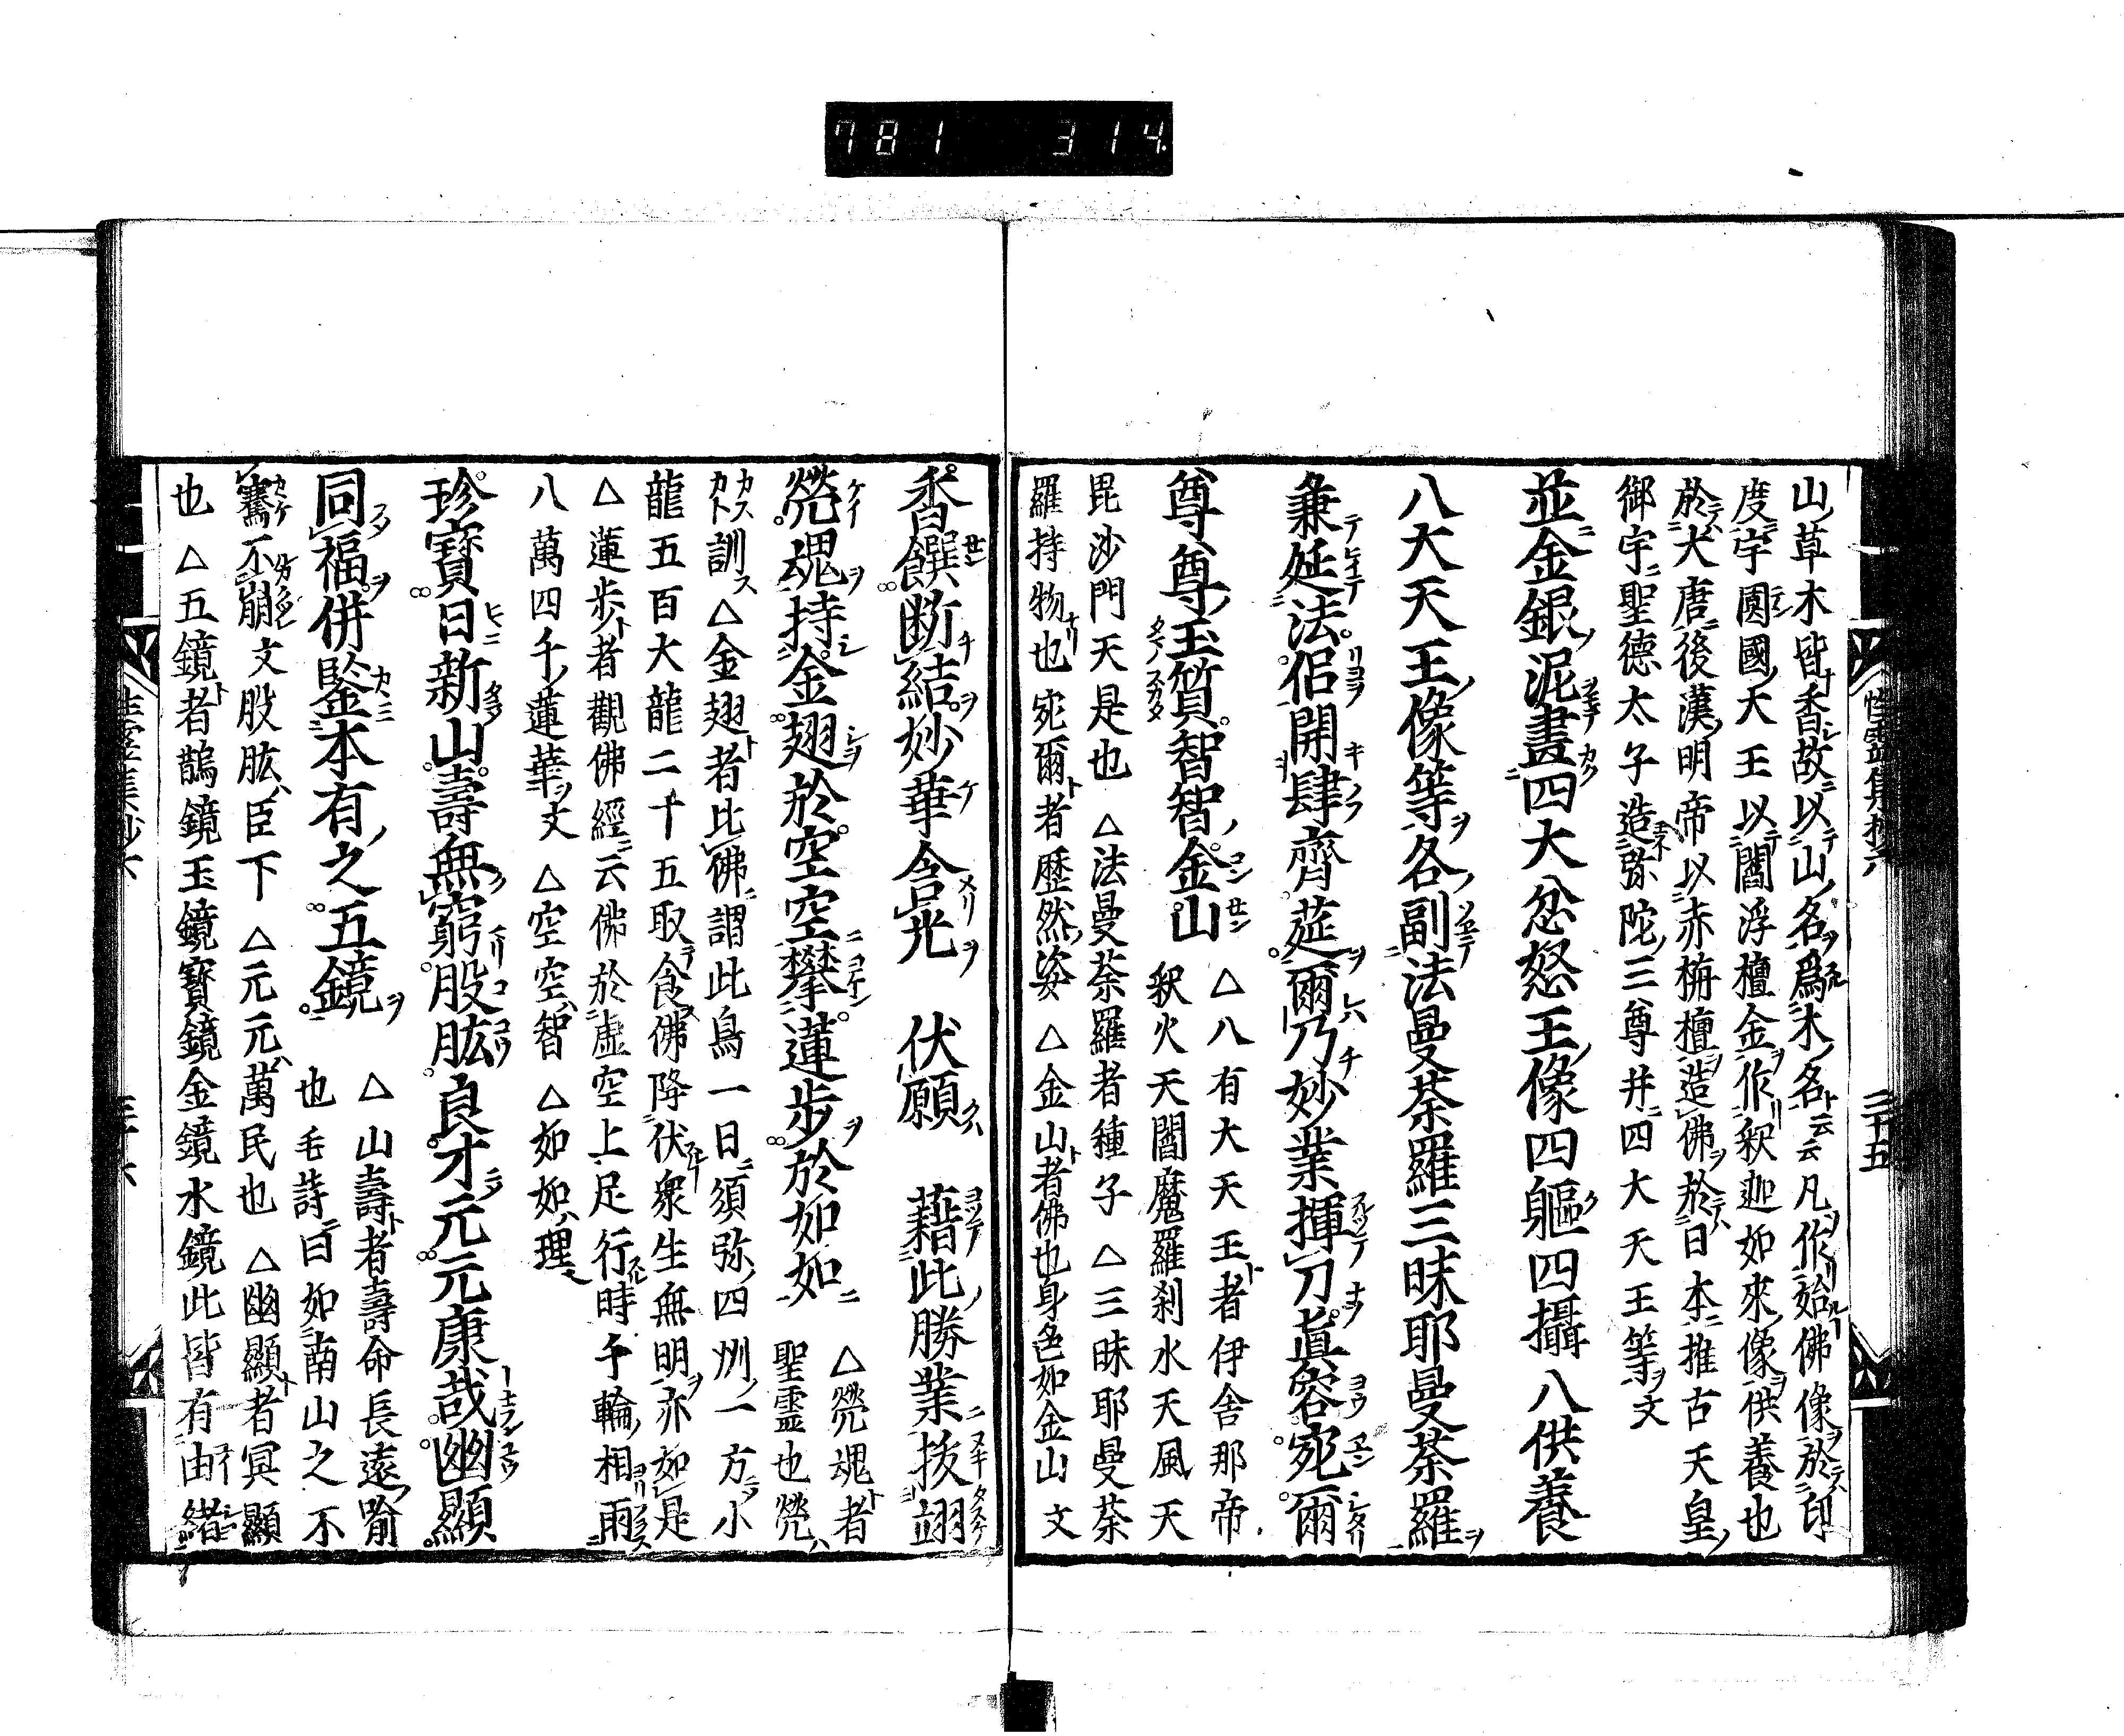 781 314
山草木皆香故以山名爲木名云云凡作始佛像於印
度宇圓國天王以閻浮檀金作釈迦如來像供養也
於大唐後漢明帝以赤栴檀造佛於日本推古天皇
御宇聖德太子造弥陀三尊并四大天王等文
並金銀泥畫四大忿怒王像四軀四攝八供養
八大天王像等各副法曼荼羅三昧耶曼荼羅
兼延法侶開肆齊莚爾乃妙業揮刀真容宛爾
尊尊玉質智智金山
△八有大天王者伊舎那帝
釈火天閻魔羅刹水天風天
毘沙門天是也△法曼荼羅者種子△三昧耶曼荼
羅持物也宛爾者歴然姿△金山者佛也身色如金山文
三十五
香饌断結妙華含光 伏願 藉此勝業抜翊
煢魂持金翅於空空攀蓮歩於如如
△煢魂者
聖霊也煢
カス
カト訓ス△金翅者比佛謂此鳥一日須弥四州一方小
龍五百大龍二十五取食佛降伏衆生無明亦如是
△蓮歩者觀佛經云佛於虚空上足行時千輪相雨
八萬四千蓮華文△空空智△如如理
珍寶日新山壽無窮股肱良才元元康哉幽顯
同福併鋻本有之五鏡
△山壽者壽命長遠喻
也毛詩曰如南山之不
騫不崩文股肱臣下△元元萬民也△幽顯者冥顯
也△五鏡者鵲鏡玉鏡寶鏡金鏡水鏡此皆有由緒